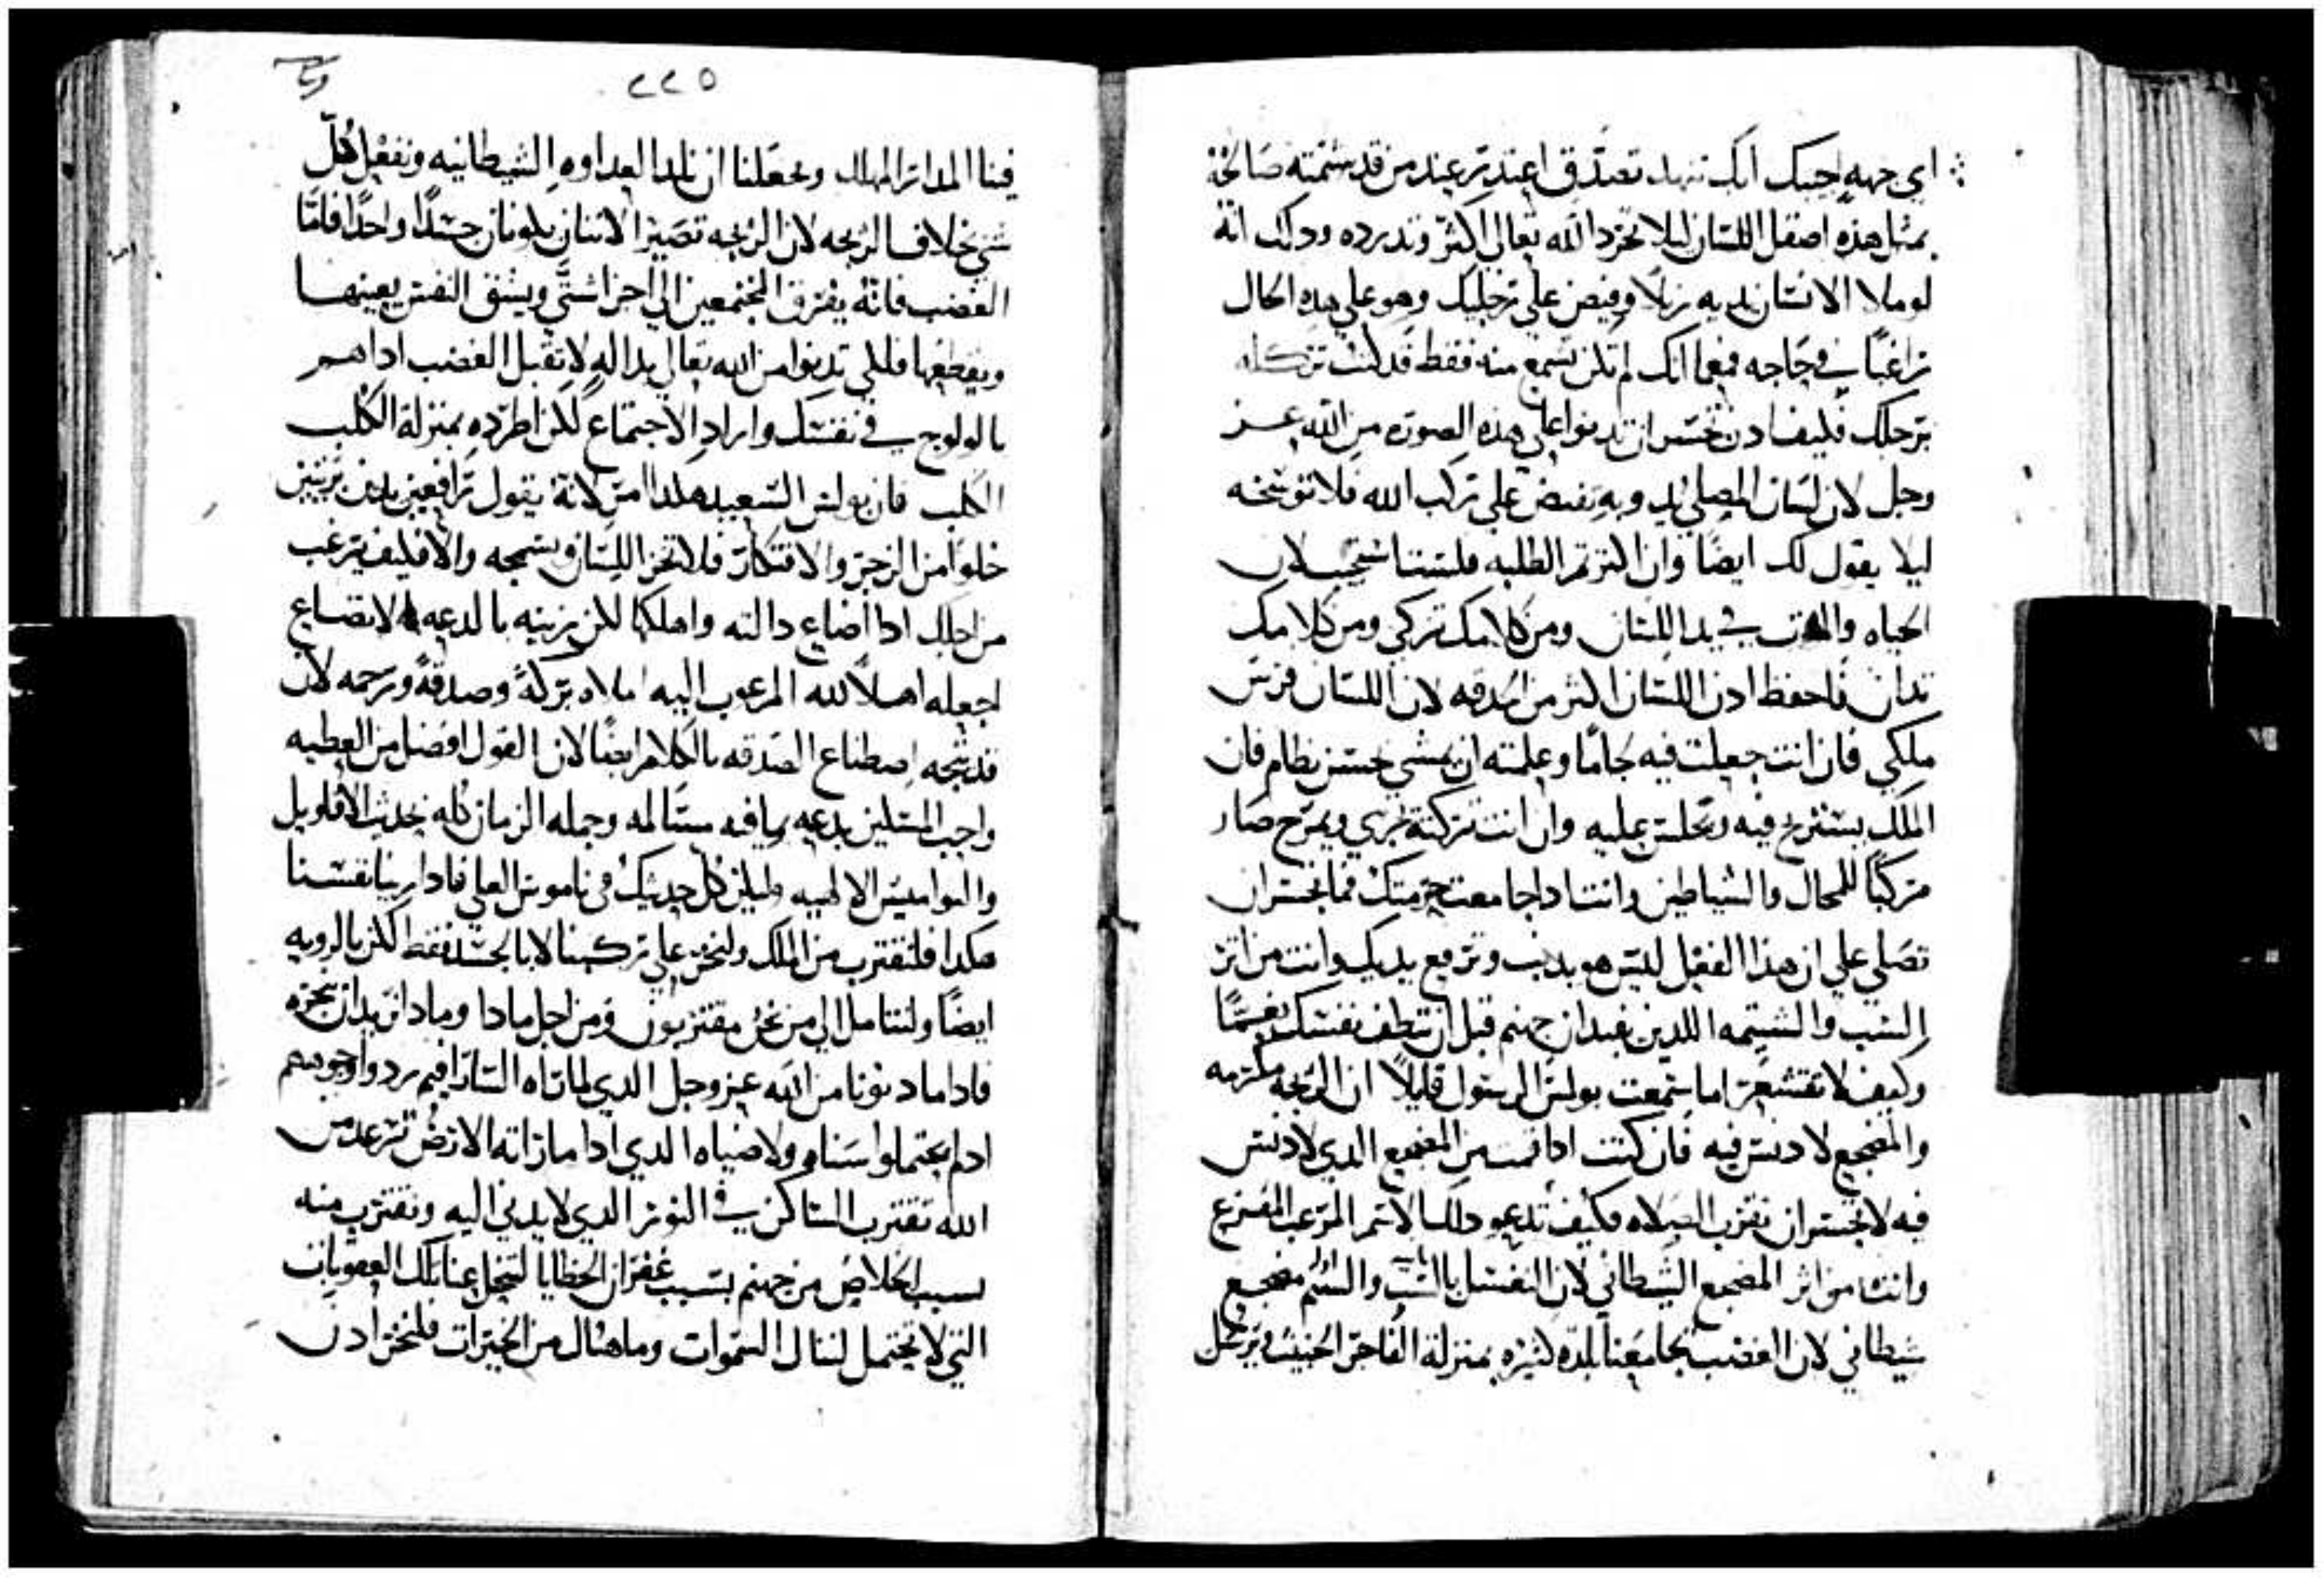 اي جهه احبك انك تنهد تصدق اعتدر عند من قد شتمته صالحه
بمثل هذه اصقل اللسان ليلا تحرد الله تعالى اكثر وتدرده ودلك انه
لو ملا الانسان يديه زبلا وقبض على رجليك وهو على هذه الحال
راغبا في حاجه فمع انك لم تكن تسمع منه فقط قد كنت تركله
برجلك فكيف ادن تجسر ان تدنوا على هذه الصوره من الله عز
وجل لان لسان المصلي يد وبه نقبض على ركب الله فلا توسخه
ليلا يقول لك ايضا وان اكثرتم الطلبه فلست استجيب لان
الحياه والموت في يد اللسان ومن كلامك تزكي ومن كلامك
تدان فاحفظ ادن اللسان اكثر من الحدقه لان اللسان فرس
ملكي فان انت جعلت فيه لجاما وعلمته ان يمشي بحسن نظام فان
الملك يستريح فيه ويجلس عليه وان انت تركته يجري ويمرح صار
مركبا للمحال والشياطين وانت اداجا معت حرمتك فما تجسر ان
تصلي على ان هذا الفعل ليس هو بدنب وترفع يديك وانت من اثر
السب والشتيمه اللدين يفيدان جهنم قبل ان تنظف نفسك نعما
وكيف لا تقشعر اما سمعت بولس الرسول قايلا ان الزيجه مكرمه
والمضجع لا دنس فيه فان كنت ادا قمت من المضجع الدي لا دنس
فيه لا تجسر ان تقرب الصلاه فكيف تدعو دلك الاسم المرعب المفزع
وانت من اثر المضجع الشيطاني لان التفشل بالسب والشتم مضجع
شيطاني لان الغضب يجامعنا بلده كثيره بمنزلة الفاجر الخبيث ويرخل
٢٢٥
فينا المهلك ويجعلنا ان نلد العداوه الشيطانيه ونفعل كل
شي بخلاف الزيجه لان الزيجه تصير الاتنان يكونان جسدا واحدا فاما
الغضب فانه يفرق المجتمعين الى اجزا شتى ويشق النفس بعينها
ويقطعها فلكي تدنوا من الله تعالى بداله لا تقبل الغضب ادا هم
بالولوج في نفسك واراد الاجتماع لكن اطرده بمنزلة الكلب
الكلب فان بولس السعيد هكدا امر لانه يقول رافعين يدين بريتين
خلوا من الزجر والافتكار فلا تخز اللسان وبسمجه والا فكيف يرغب
من اجلك ادا اضاع دالته واهلكها لكن زينه بالدعه بالاتضاع
اجعله اهلا لله المرغوب اليه املاه بركه وصدقه ورحمه لان
قد يتجه اصطناع الصدقه بالكلام ايضا لان القول افضل من العطيه
واجب المسكين بدعه مسالمه وجمله الزمان كله بحديث الاقاويل
والنواميس الالهيه وليكن كل حديثك في ناموس العلي فادا زينا نفسنا
هكدا فلنقترب من الملك ولنخر على ركبنا لا بالجسد فقط لكن بالرويه
ايضا ولنتامل الى من نحن مقتربون ومن اجل مادا ومادا نريد ان نحزه
فادا ما دنونا من الله عز وجل الدي لما تراه السارافيم ردوا وجوههم
ادلم يحتملوا سناه ولا ضياه الدي ادا ما راته الارض ترعد من
الله نقترب الساكن في النور الدي لا يدنى اليه ونقترب منه
بسبب الخلاص من جهنم بسبب غفران الخطايا لتنحل عنا تلك العقوبات
التي لا تحتمل لننال السموات وما هناك من الخيرات فلنخر ادن